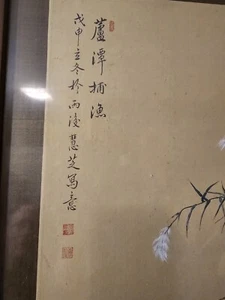 蘆潭捕漁
戊申立冬於雨後慧芝寫意